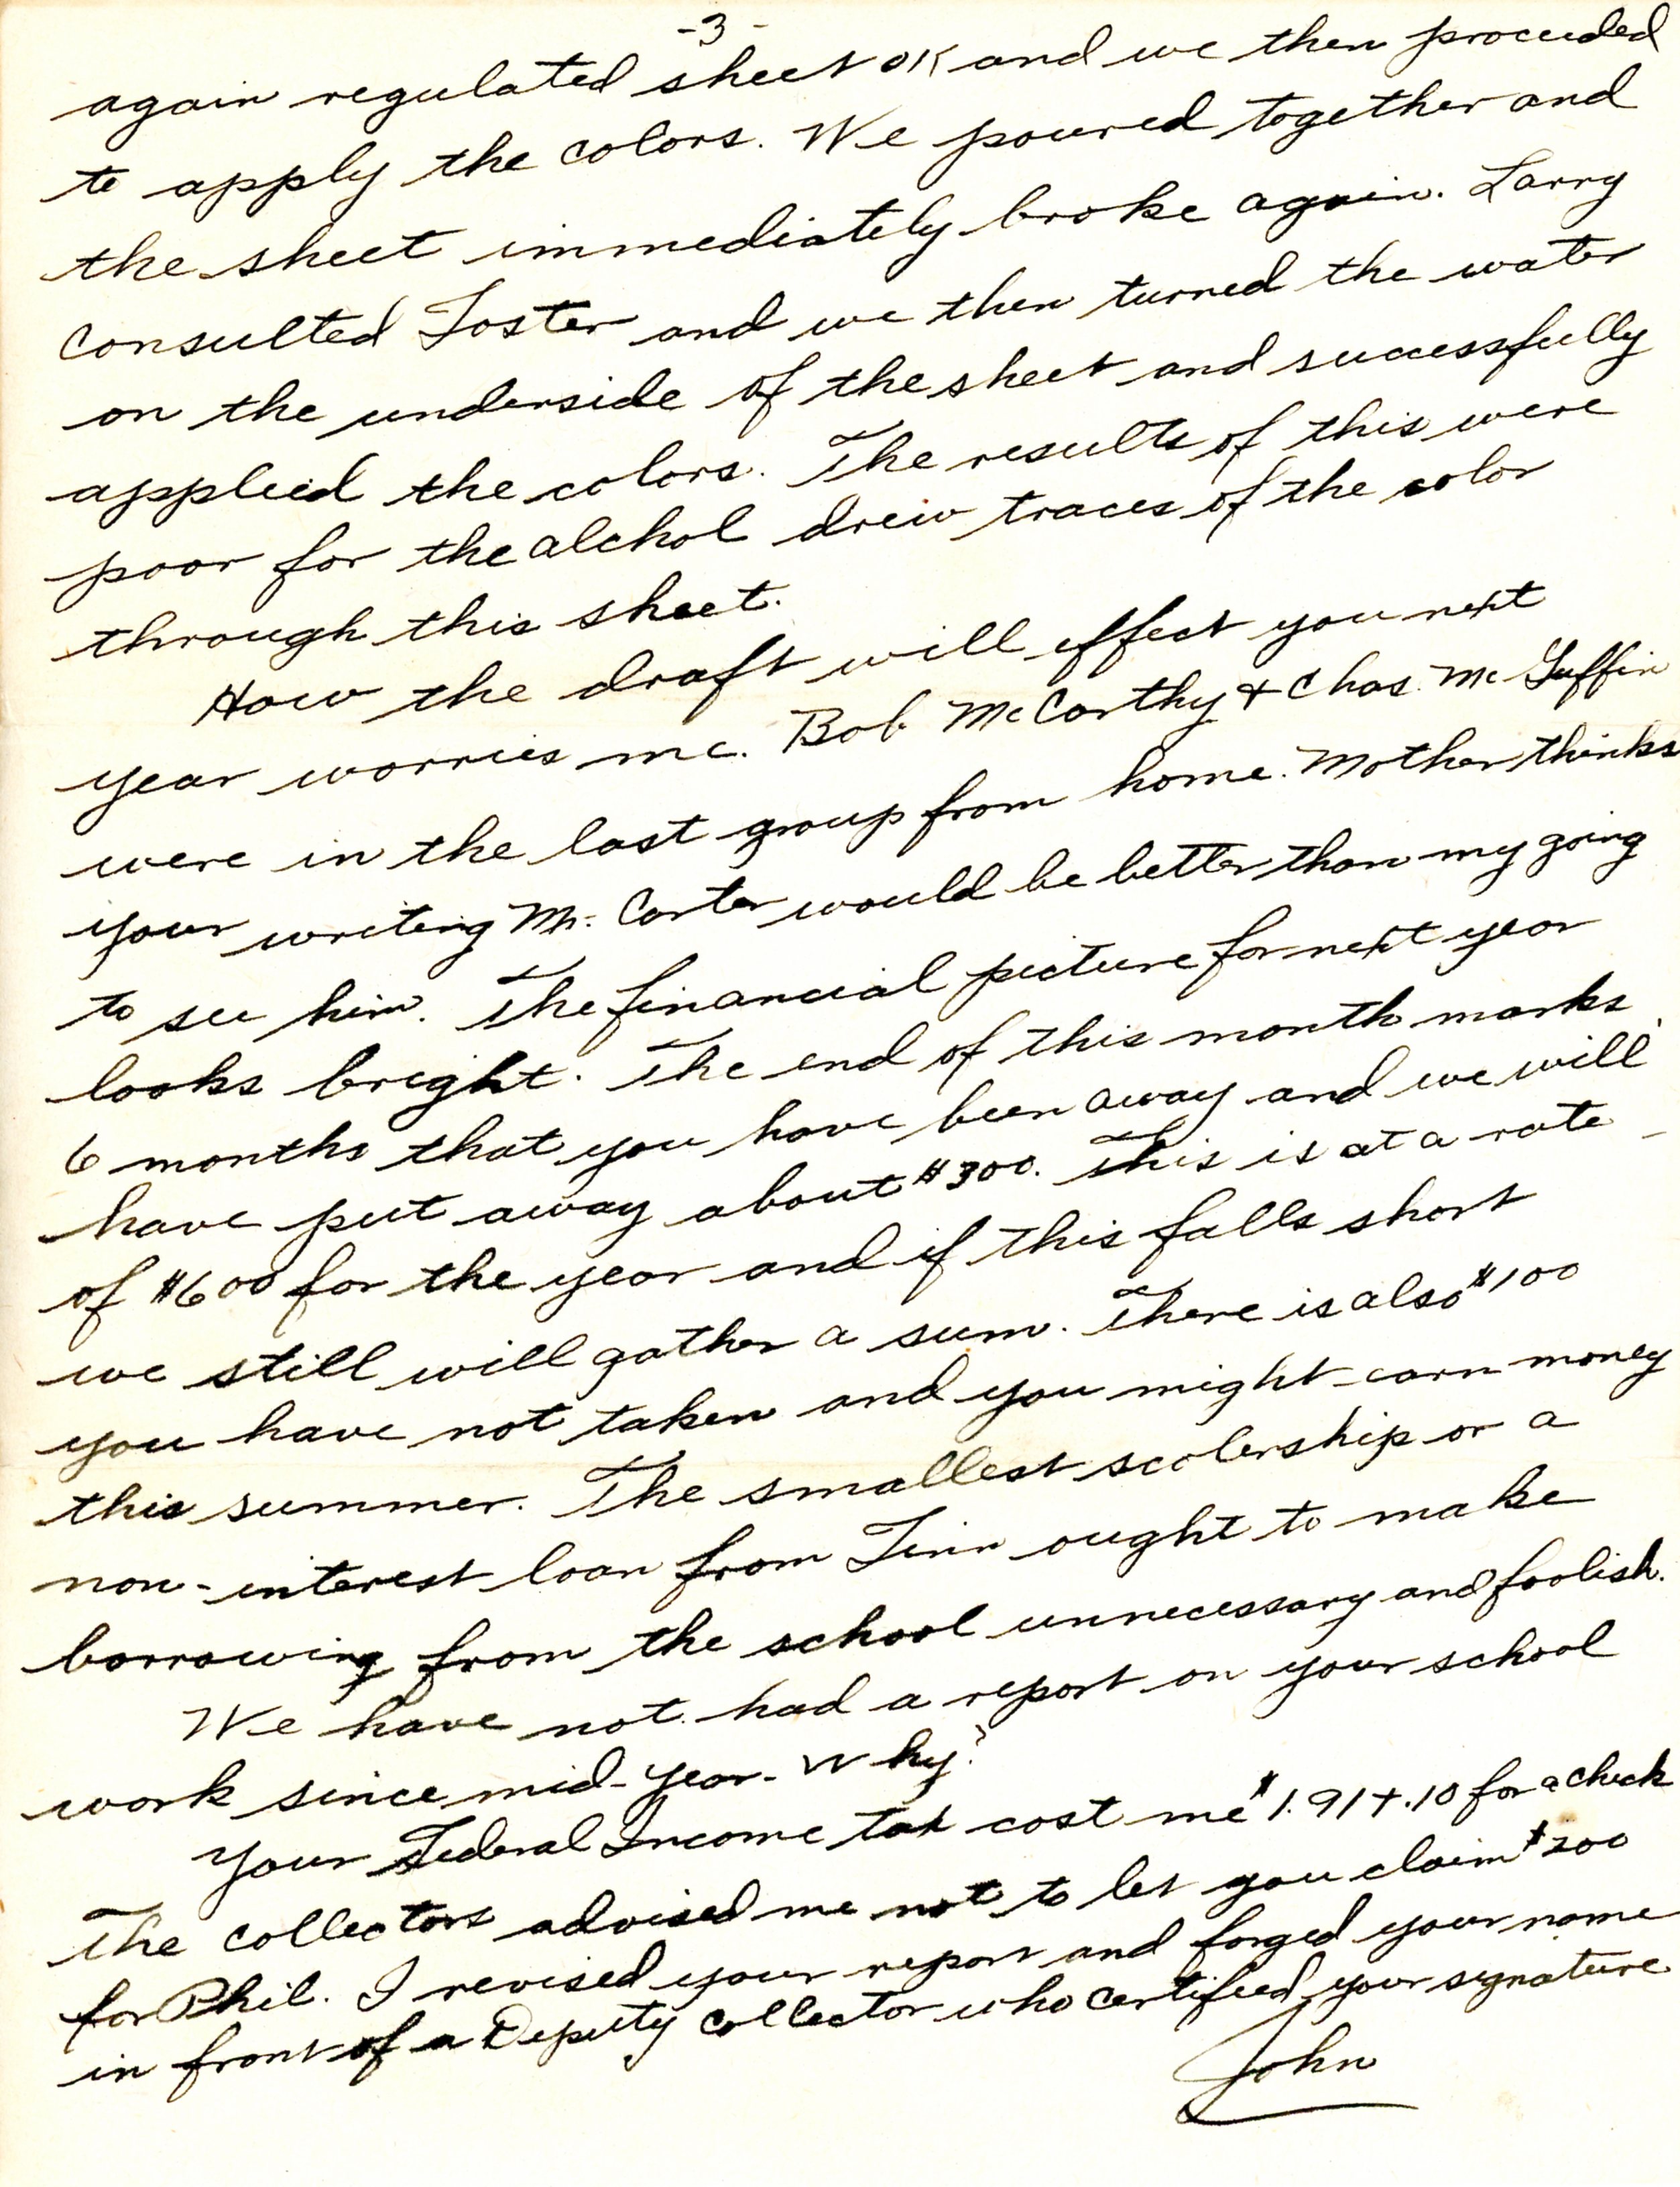 -3-
again regulated sheet OK and we then proceeded
to apply the colors. We poured together and
the sheet immediately broke again. Larry
consulted Foster and we then turned the water
on the underside of the sheet and successfully
applied the colors. The results of this were
poor for the alchol drew traces of the color
through this sheet.
How the draft will effect you next
year worries me. Bob McCarthy + Chas. McGuffin
were in the last group from home. Mother thinks
your writing Mr. Carter would be better than my going
to see him. The financial picture for next year
looks bright. The end of this month marks
6 months that you have been away and we will
have put away about $300. This is at a rate
of $600 for the year and if this falls short
we still will gather a sum. There is also $100
you have not taken and you might earn money
this summer. The smallest scolership or a
non-interest loan from Finn ought to make
borrowing from the school unnecessary and foolish.
We have not had a report on your school
work since mid-year - Why?
Your Federal Income tax cost me $1.91 + .10 for a check
The collectors advised me not to let you claim $200
for Phil. I revised your report and forged your name
in front of a Deputy collector who certified your signature
John